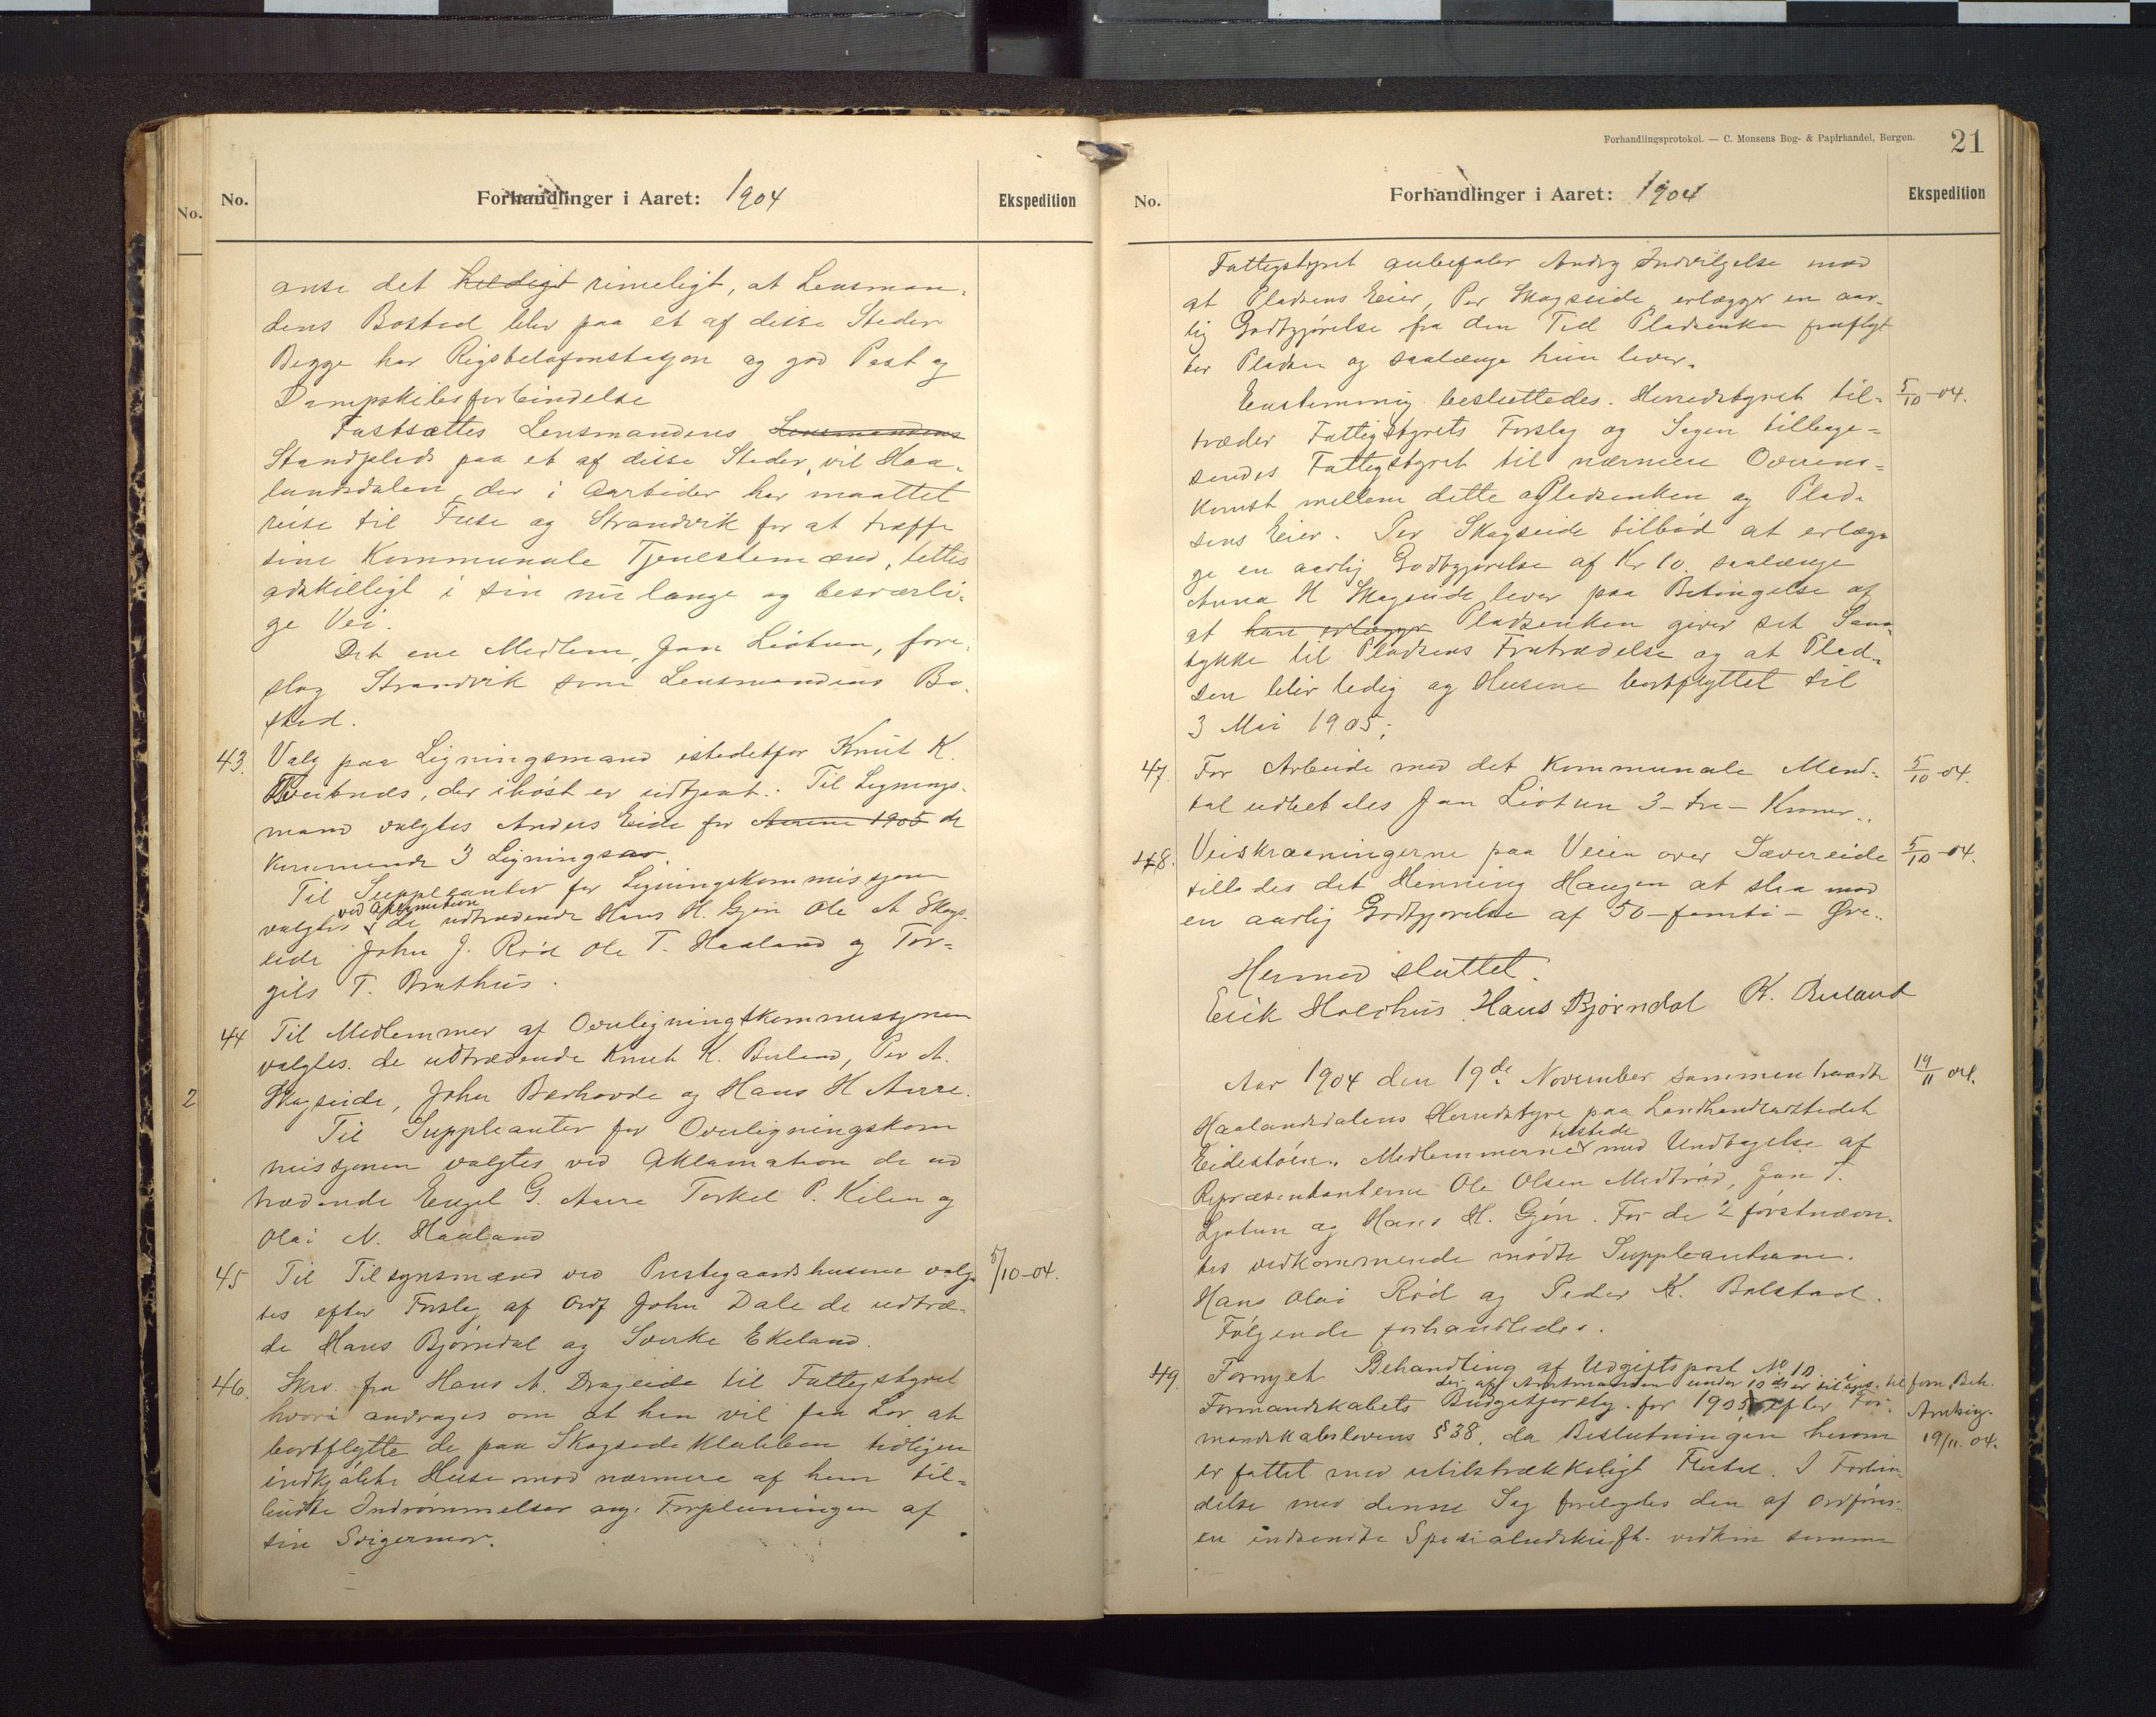 No.
No.
Forhandlinger i Aaret: 1904
Ekspedition
anse det heldigt rimeligt, at Lensman-
dens Bosted blev paa et af disse Steder
Begge har Rigstelefonstasjon og god Post og
Dampskibsforbindelse
Fastsættes Lensmandens Lensmandens
Standplads paa et af disse Steder, vil Haa-
landsdalen, der i Aartider har maattet
reise til Fuse og Strandvik for at træffe
sine Kommunale Tjenestemænd, lettes
adskilligt i sin nu lange og besværli-
ge Vei.
Det ene Medlem, Jan Liótun, fore-
slog Strandvik som Lensmandens Bo-
sted.
43. Valg paa Ligningsmand istedetfor Knut K.
Tveitnes, der ihöst er udtjent. Til Lignings-
mand valgtes Anders Eide for Aarene 1905 de
kommende 3 Ligningsaar.
Til Suppleanter for Ligningskommissjonen
ved Aklamation
valgtes de udtrædende Hans H. Gjön Ole A Skogs-
eide John J. Röd Ole T. Haaland og Tor-
gils T. Brathus.
44 Til Medlemmer af Overligningskommissjonen
valgtes de udtrædende Knut K. Berland, Per A.
2
Skogseide, John Berhovde og Hans H Aure.
Til Suppleanter for Overligningskom
missjonen valgtes ved Aklamation de ud
trædende Engel G. Aure Torkel P. Kilen og
Olai N. Haaland
45 Til Tilsynsmænd ved Prestegaardshusene valg- 5/10-04.
tes efter Forslag af Ordf John Dale de udtræ-
de Hans Bjørndal og Sverke Ekeland.
46. Skr. fra Hans A. Drageide til Fattigstyret
hvori andrages om at han vil faa Lov at
bortflytte de paa Skogseideklubben tidligere
indkjöbte Huse mod nærmere af ham til-
budte Indrømmelser ang. Forpleiningen af
sin Svigermor.
Forhandlingsprotokol. — C. Monsens Bog- & Papirhandel, Bergen.
21
No.
Forhandlinger i Aaret: 1904
Ekspedition
Fattigstyret anbefaler Andrg Indvilgelse mod
at Pladsens Eier, Per Skogseide, erlægger en aar-
lig Godtgjörelse fra den Tid Pladsenken fraflyt
ter Pladsen og saalænge hun lever.
Eenstemmig besluttedes. Herredstyret til- 5/10-04.
træder Fattigstyrets Forslag og Sagen tilbage-
sendes Fattigstyret til nærmere Overens-
komst mellem dette og Pladsenken og Plad-
sens Eier. Per Skogseide tilböd at erlæg-
ge en aarlig Godtgjörelse af Kr 10. saalænge
Anna H Skogseide lever paa Betingelse af
at han erlægger Pladsenken giver sit Sam-
tykke til Pladsens Fratrædelse og at Plad-
sen blir ledig og Husene bortflyttet til
3 Mai 1905;
47. For Arbeide med det kommunale Mand- 5/10-04.
tal udbetales Jan Liotun 3- tre- Kroner.
48. Veiskraaningerne paa Veien over Sævereide 5/10-04.
tillades det Henning Haugen at slaa mod
en aarlig Godtgjørelse af 50-femti- Øre.
Hermed sluttet.
Erik Holdhus Hans Bjørndal K. Berland
Aar 1904 den 19de November sammentraadte 19/11 04.
Haalandsdalens Herredstyre paa Landhandlerstedet
tilstede
Eidestöen. Medlemmerne med Undtagelse af
Repræsentanterne Ole Olsen Medtröd, Jan T.
Ljotun og Hans H. Gjön. For de 2 förstnævn-
tes vedkommende mödte Suppleanterne
Hans Olai Röd og Peder K. Bolstad.
Fölgende forhandledes.
49. Fornyet Behandling af Udgiftspost No 10 i
der af Amtmanden under 10 ds er tilbags. til forn. Beh.
Formandskabets Budgetforslag for 1905 efter For-
Amtsing.
mandskabslovens § 38, da Beslutningen herom
19/11. 04.
er fattet med utilstrækkeligt Flertal. I Forbin-
delse med denne Sag forelagdes den af Ordföre-
en indsendte Spesialudskrift vedkom samme